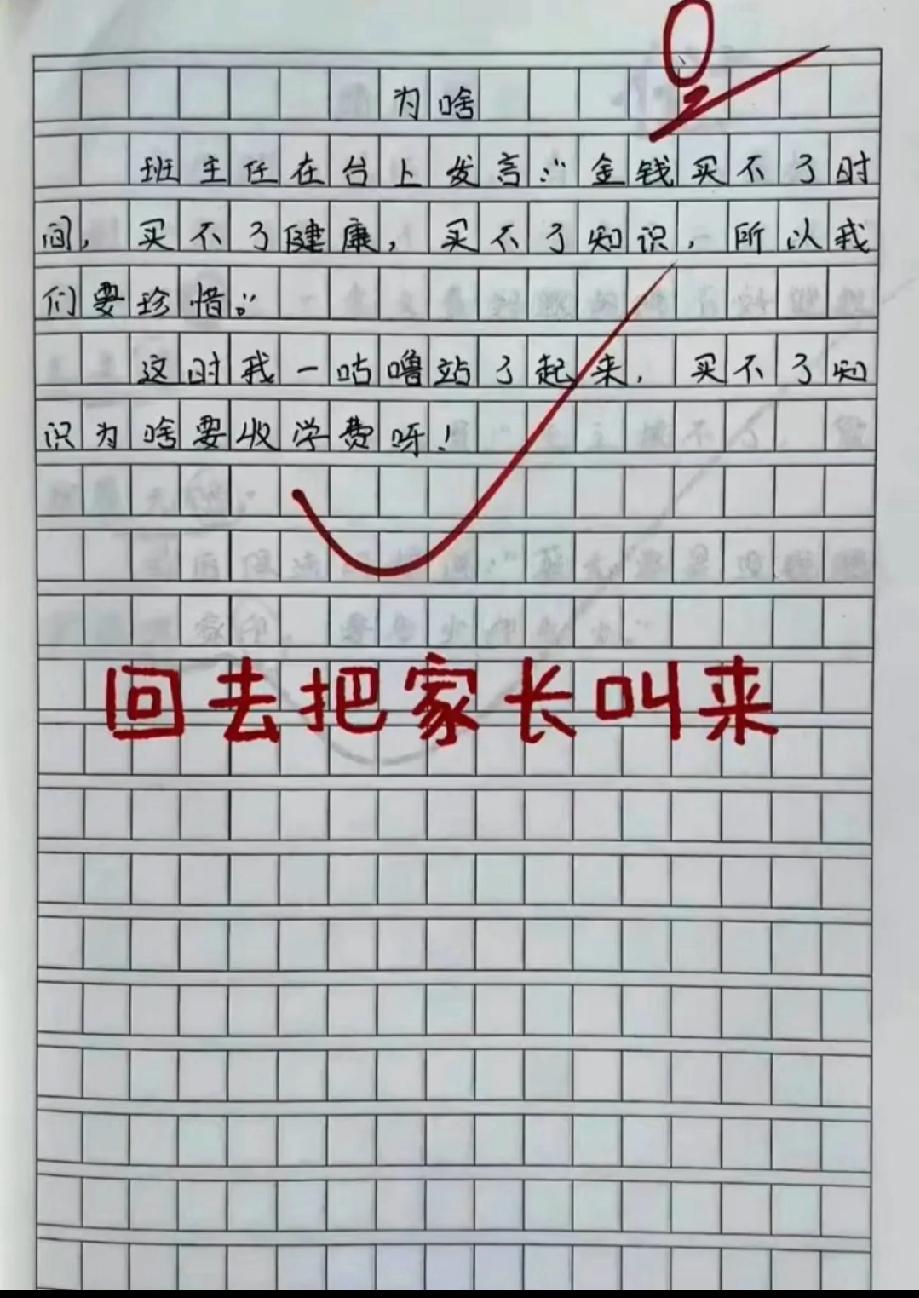 0
为啥
班主任在台上发言:“金钱买不了时
间,买不了健康,买不了知识,所以我
们要珍惜。”
这时我一咕噜站了起来,买不了知
识为啥要收学费呀!
回去把家长叫来